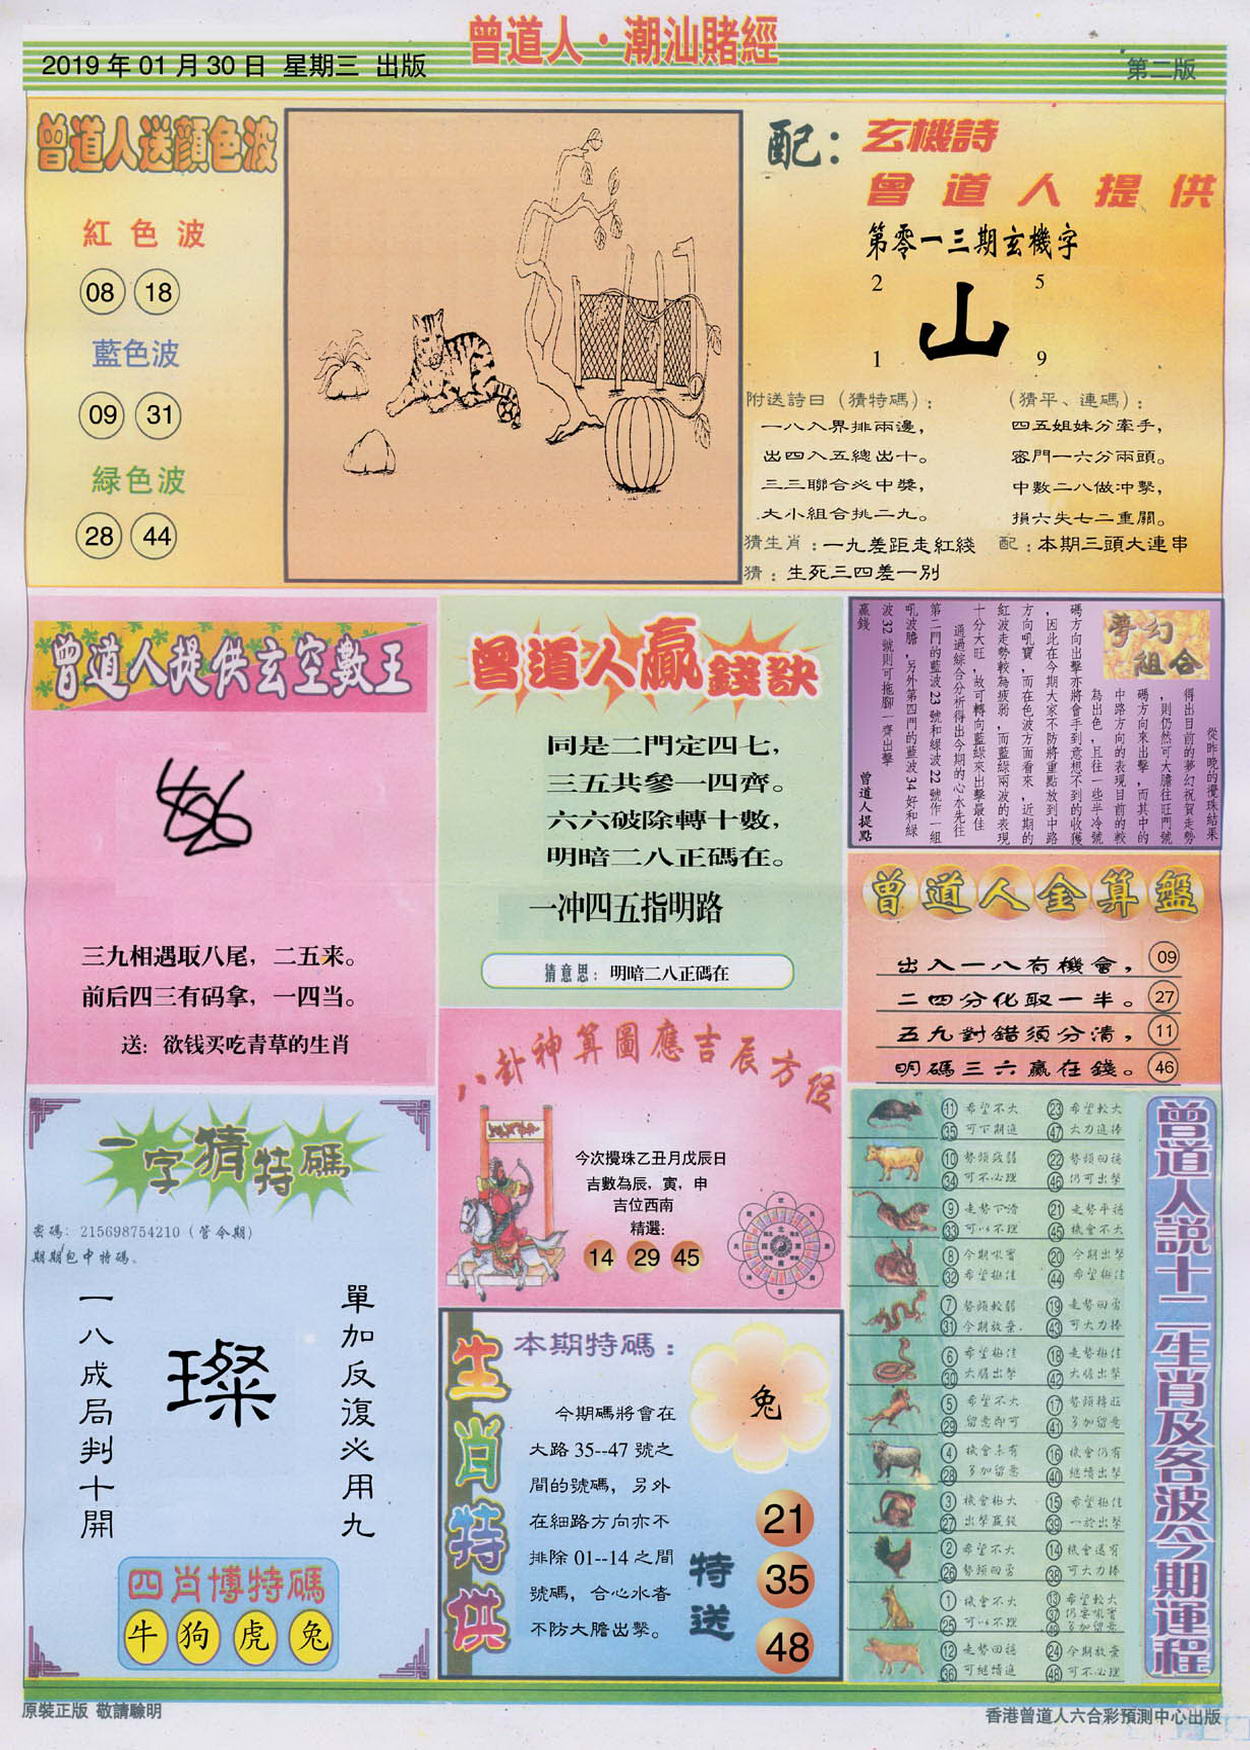 曾道人·潮汕賭經
2019年01月30日 星期三 出版
第二版
曾道人送顔色波
紅色波
08 18
藍色波
09 31
緑色波
28 44
配：玄機詩
曾道人提供
第零一三期玄機字
2 5
山
1 9
附送詩曰（猜特碼）：
一八入界排兩邊，
出四入五總出十。
三三聯合必中獎，
大小組合挑二九。
（猜平、連碼）：
四五姐妹分牽手，
密門一六分兩頭。
中數二八做冲擊，
損六失七二重關。
猜生肖：一九差距走紅綫 配：本期三頭大連串
猜：生死三四差一别
曾道人提供玄空數王
三九相遇取八尾，二五来。
前后四三有码拿，一四当。
送：欲钱买吃青草的生肖
曾道人贏錢訣
同是二門定四七，
三五共參一四齊。
六六破除轉十數，
明暗二八正碼在。
一冲四五指明路
猜意思：明暗二八正碼在
夢幻
組合
從昨晚的攪珠結果
得出目前的夢幻祝賀走勢
，則仍然可大膽往旺門號
碼方向來出擊，而其中的
中路方向的表現目前的較
為出色，且往一些半冷號
碼方向出擊亦將會手到意想不到的收獲
，因此在今期大家不防將重點放到中路
方向吼寶，而在色波方面看來，近期的
紅波走勢較為疲弱，而藍綠兩波的表現
十分大旺，故可轉向藍綠來出擊最佳
通過綜合分析得出今期的心水先往
第二門的藍波23號和綠波22號作一組
吼波膽，另外第四門的藍波34好和綠
波32號則可拖腳一齊出擊
贏錢
曾道人提點
曾道人金算盤
出入一八有機會，09
二四分化取一半。27
五九對錯須分清，11
明碼三六贏在錢。46
八卦神算圖應吉辰方位
今次攪珠乙丑月戊辰日
吉數為辰，寅，申
吉位西南
精選：
14 29 45
一字猜特碼
密碼：215698754210（管令期）
期期包中特碼。
一八成局判十開
璨
單加反復必用九
四肖博特碼
牛 狗 虎 兔
生肖特供
本期特碼：
兔
今期碼將會在
大路35--47號之
間的號碼，另外
在細路方向亦不
排除01--14之間
號碼，合心水者
不防大膽出擊。
特送
21
35
48
曾道人説十二生肖及各波今期運程
11 希望不大 23 希望較大
35 可下期進 47 大力追捧
10 勢頭減弱 22 勢頭回穩
34 可不必理 46 仍可出擊
9 走勢下滑 21 走勢平穩
33 可以不理 45 機會不大
8 今期吼寶 20 今期出擊
32 希望極佳 44 希望極佳
7 勢頭較弱 19 走勢回勇
31 今期放棄 43 可大力捧
6 希望極佳 18 走勢極佳
30 大膽出擊 42 大膽出擊
5 希望不大 17 勢頭轉旺
29 留意即可 41 多加留意
4 機會未有 16 機會仍有
28 多加留意 40 繼續出擊
3 機會極大 15 希望極佳
27 出擊贏錢 39 一於出擊
2 希望不大 14 機會還有
26 勢頭回勇 38 可大力捧
1 機會不大 13 希望較大
25 可以不理 37 仍要吼實
49 多加留意
12 走勢回穩 24 今期放棄
36 可繼續進 48 可不必理
原裝正版 敬請驗明
香港曾道人六合彩預測中心出版